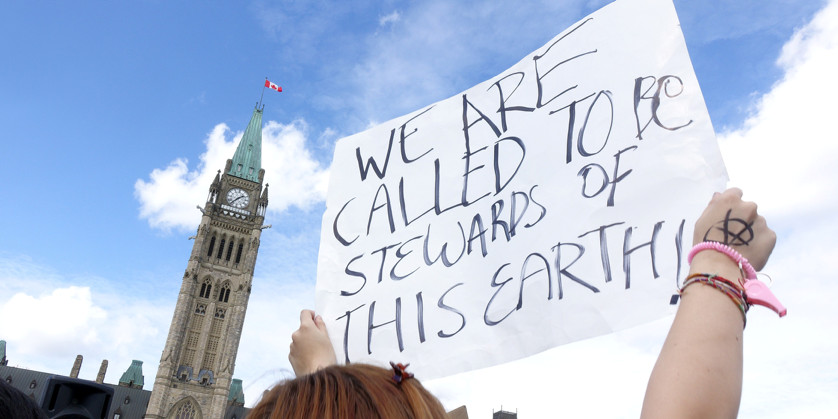 WE ARE
CALLED TO BE
STEWARDS OF
THIS EARTH!